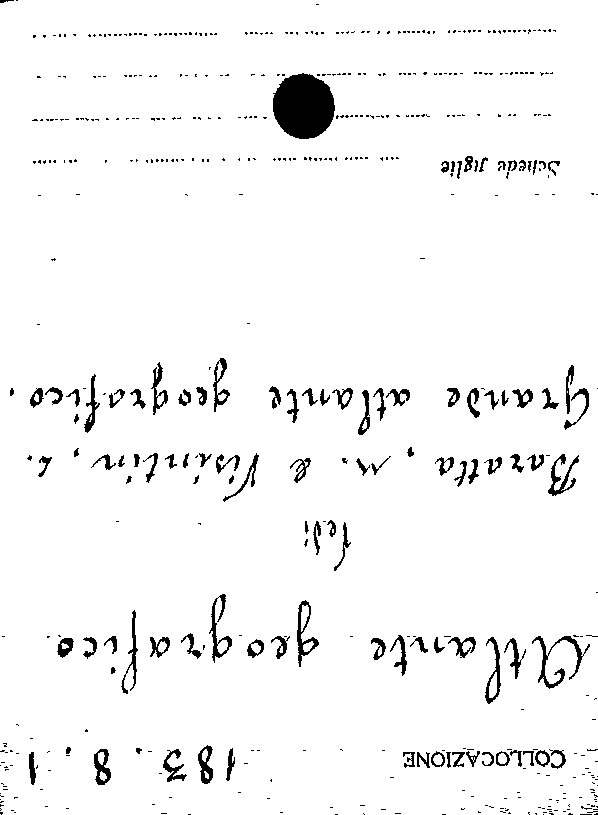 COLLOCAZIONE 183.8.1
Atlante geografico
Vedi
Baratta, M. e Visintin, L.
Grande atlante geografico.
Schede figlie